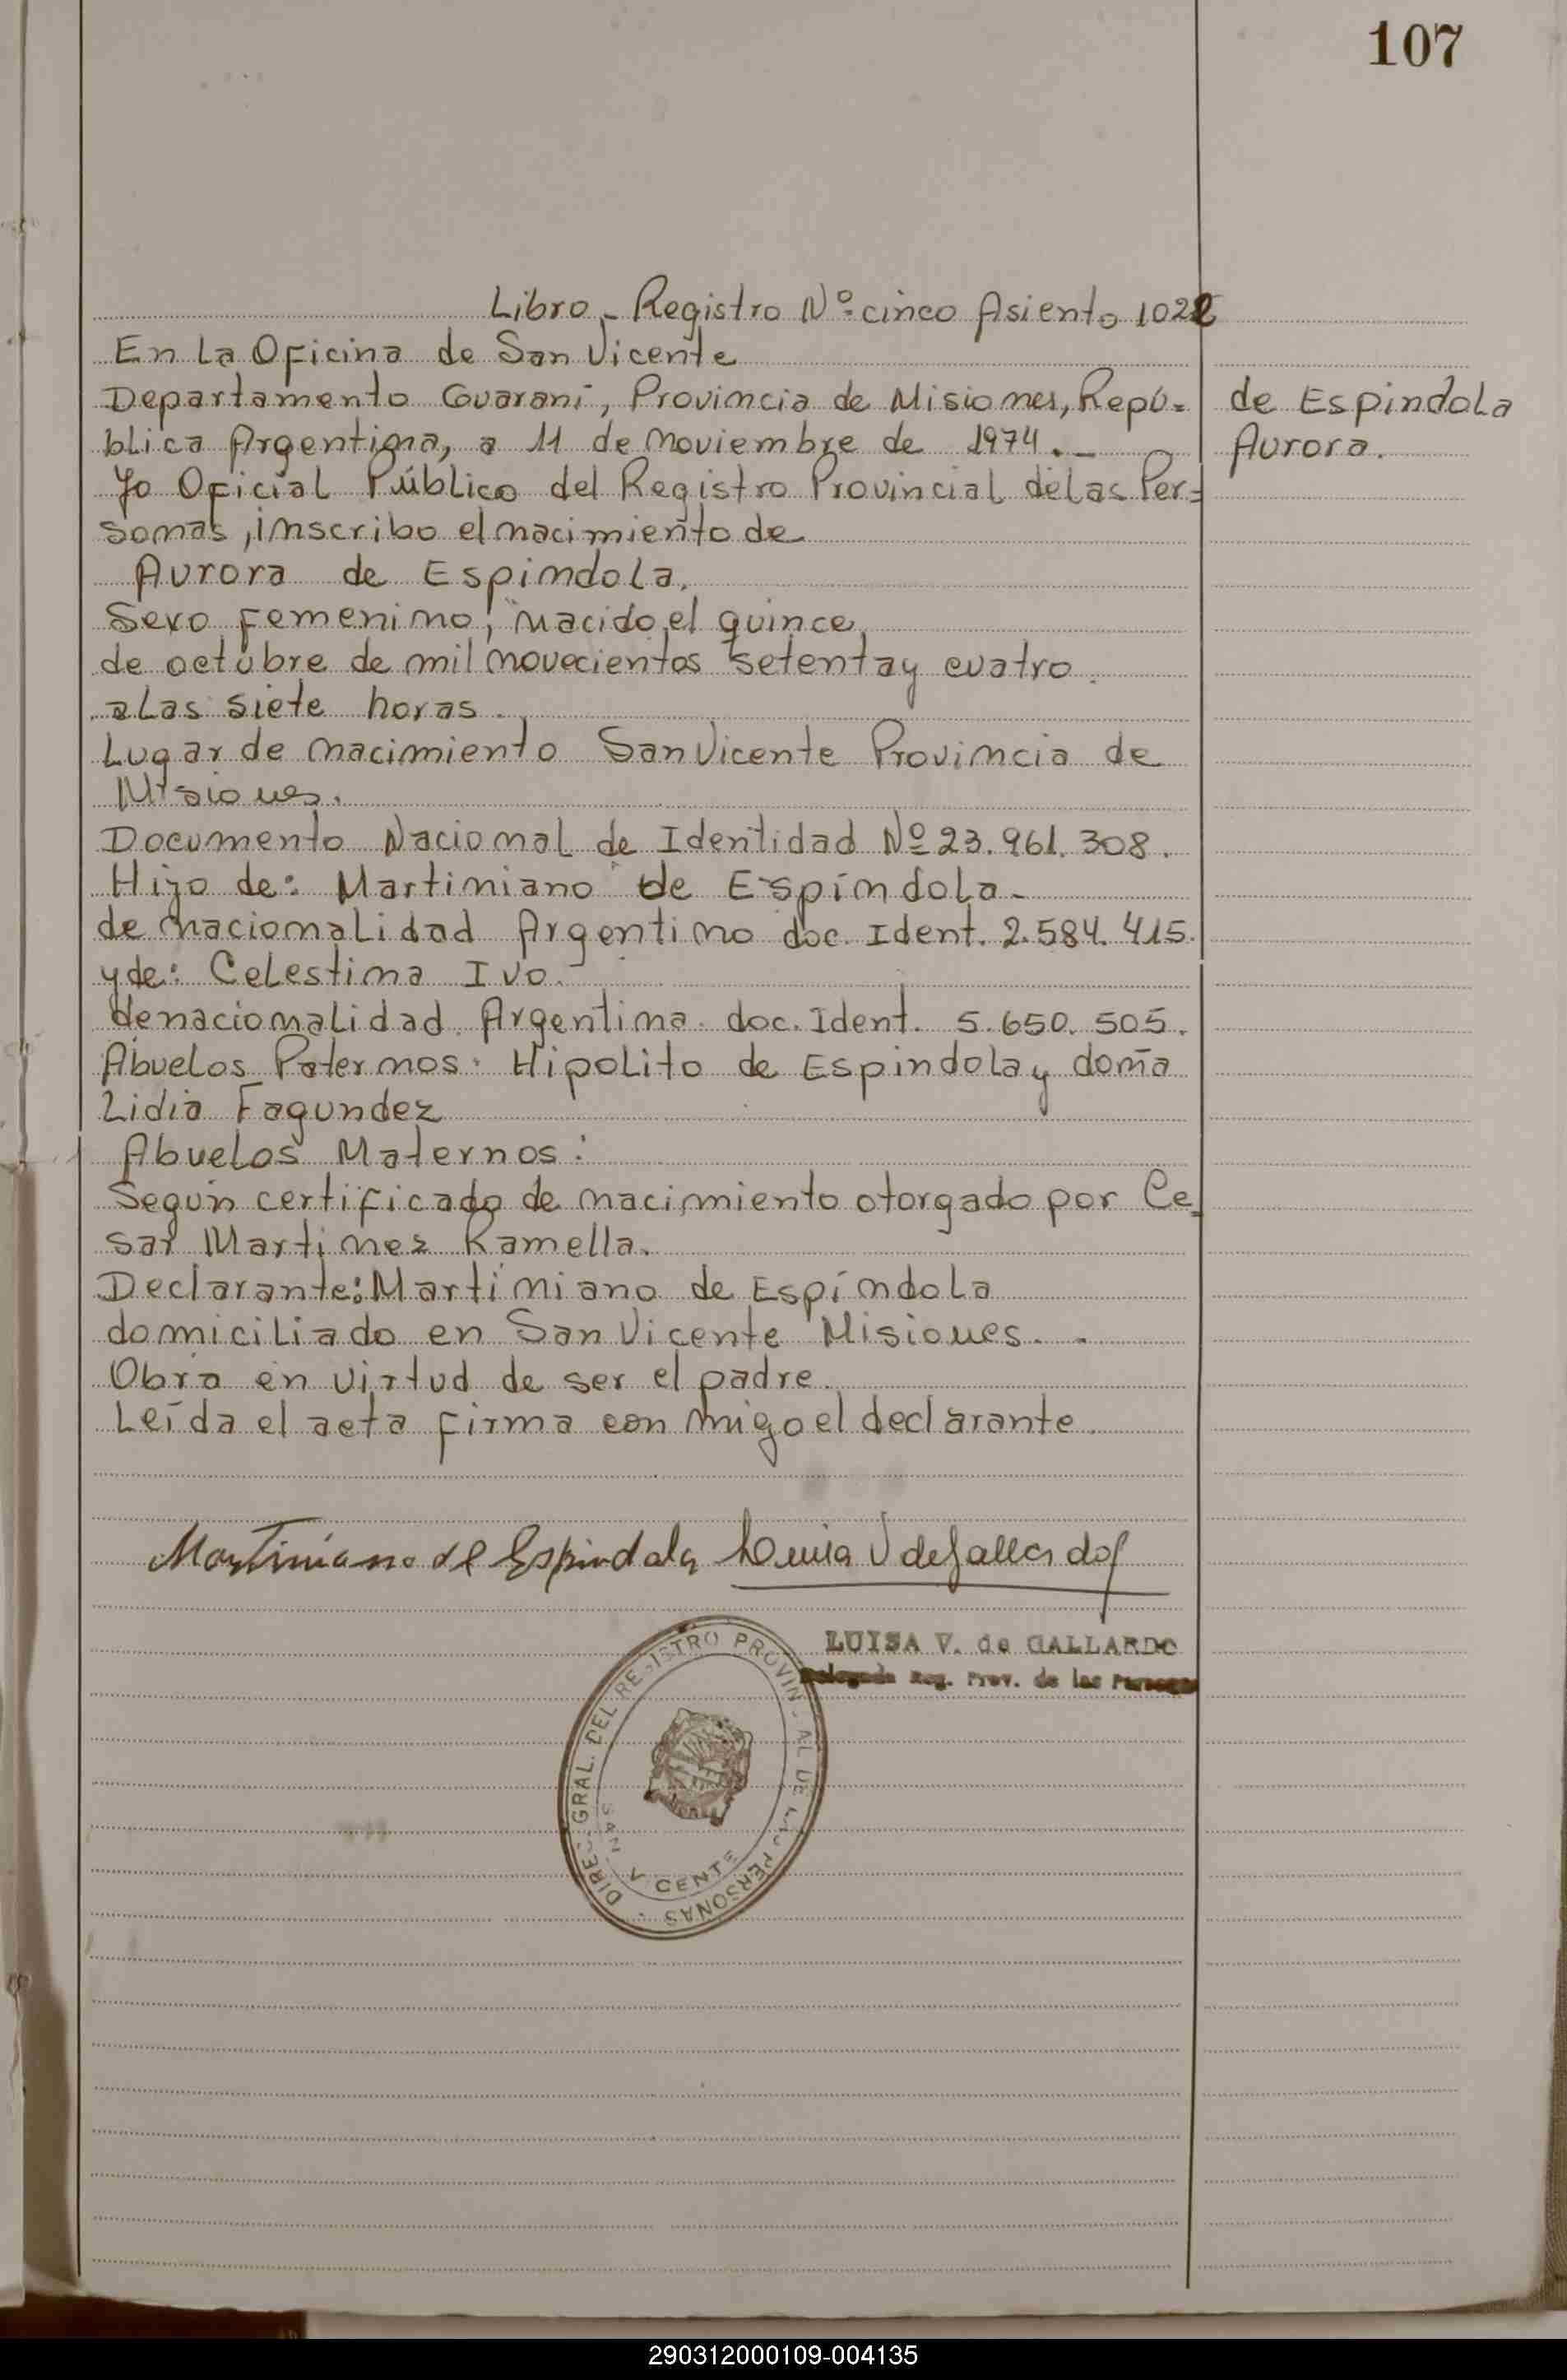 107
Libro - Registro Nº cinco Asiento 1022
En La Oficina de San Vicente
Departamento Guarani, Provincia de Misiones, Repú-
blica Argentina, a 11 de Noviembre de 1974.-
de Espindola
Aurora.
Yo Oficial Público del Registro Provincial de las Per=
sonas, inscribo el nacimiento de
Aurora de Espindola.
Sexo Femenino, nacido el quince
de octubre de mil novecientos setenta y cuatro.
a las siete horas.
Lugar de nacimiento San Vicente Provincia de
Misiones.
Documento Nacional de Identidad Nº 23.961.308.
Hijo de: Martiniano de Espíndola-
de nacionalidad Argentino doc. Ident. 2.584.415.
y de: Celestina Ivo.-
de nacionalidad Argentina. doc. Ident. 5.650.505.
Abuelos Paternos: Hipolito de Espindola y doña
Lidia Fagundez
Abuelos Maternos:
Según certificado de nacimiento otorgado por Ce-
sar Martinez Ramella.
Declarante: Martiniano de Espíndola
domiciliado en San Vicente Misiones. .
Obra en virtud de ser el padre.
Leída el acta firma con migo el declarante.
Martiniano de Espindola Luisa V de Gallardo
LUISA V. de GALLARDO
Delegada Reg. Prov. de las Personas
DIREC. GRAL. DEL REGISTRO PROVINCIAL DE LAS PERSONAS
SAN VICENTE
290312000109-004135